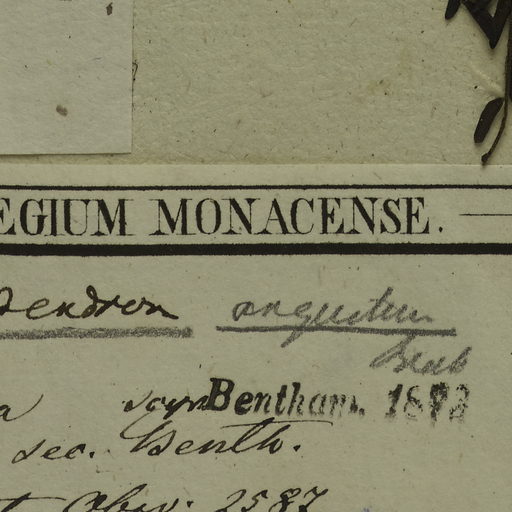 EGIUM MONACENSE.
dendron angustum
Benth
a Bentham. 1873
sec. Benth.
Obsv. 2587